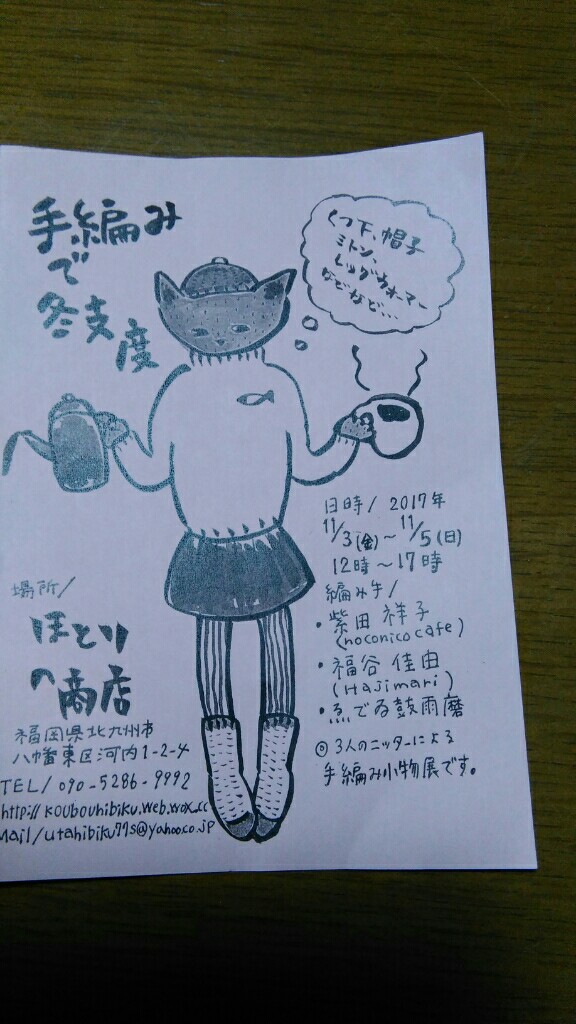 手編み
で
冬支度
くつ下、帽子
ミトン、
レッグウォーマー
などなど…
日時/ 2017年
11/3(金)~11/5(日)
12時~17時
編み手/
・柴田 祥子
(noconico cafe)
・福谷 佳由
(Hajimari)
・ゑでゐ鼓雨磨
◎3人のニッターによる
手編み小物展です。
場所/
ほとり
の商店
福岡県北九州市
八幡東区河内1-2-4
TEL/ 090-5286-9992
http://koubouhibiku.web.wox.cc
Mail/utahibiku77s@yahoo.co.jp